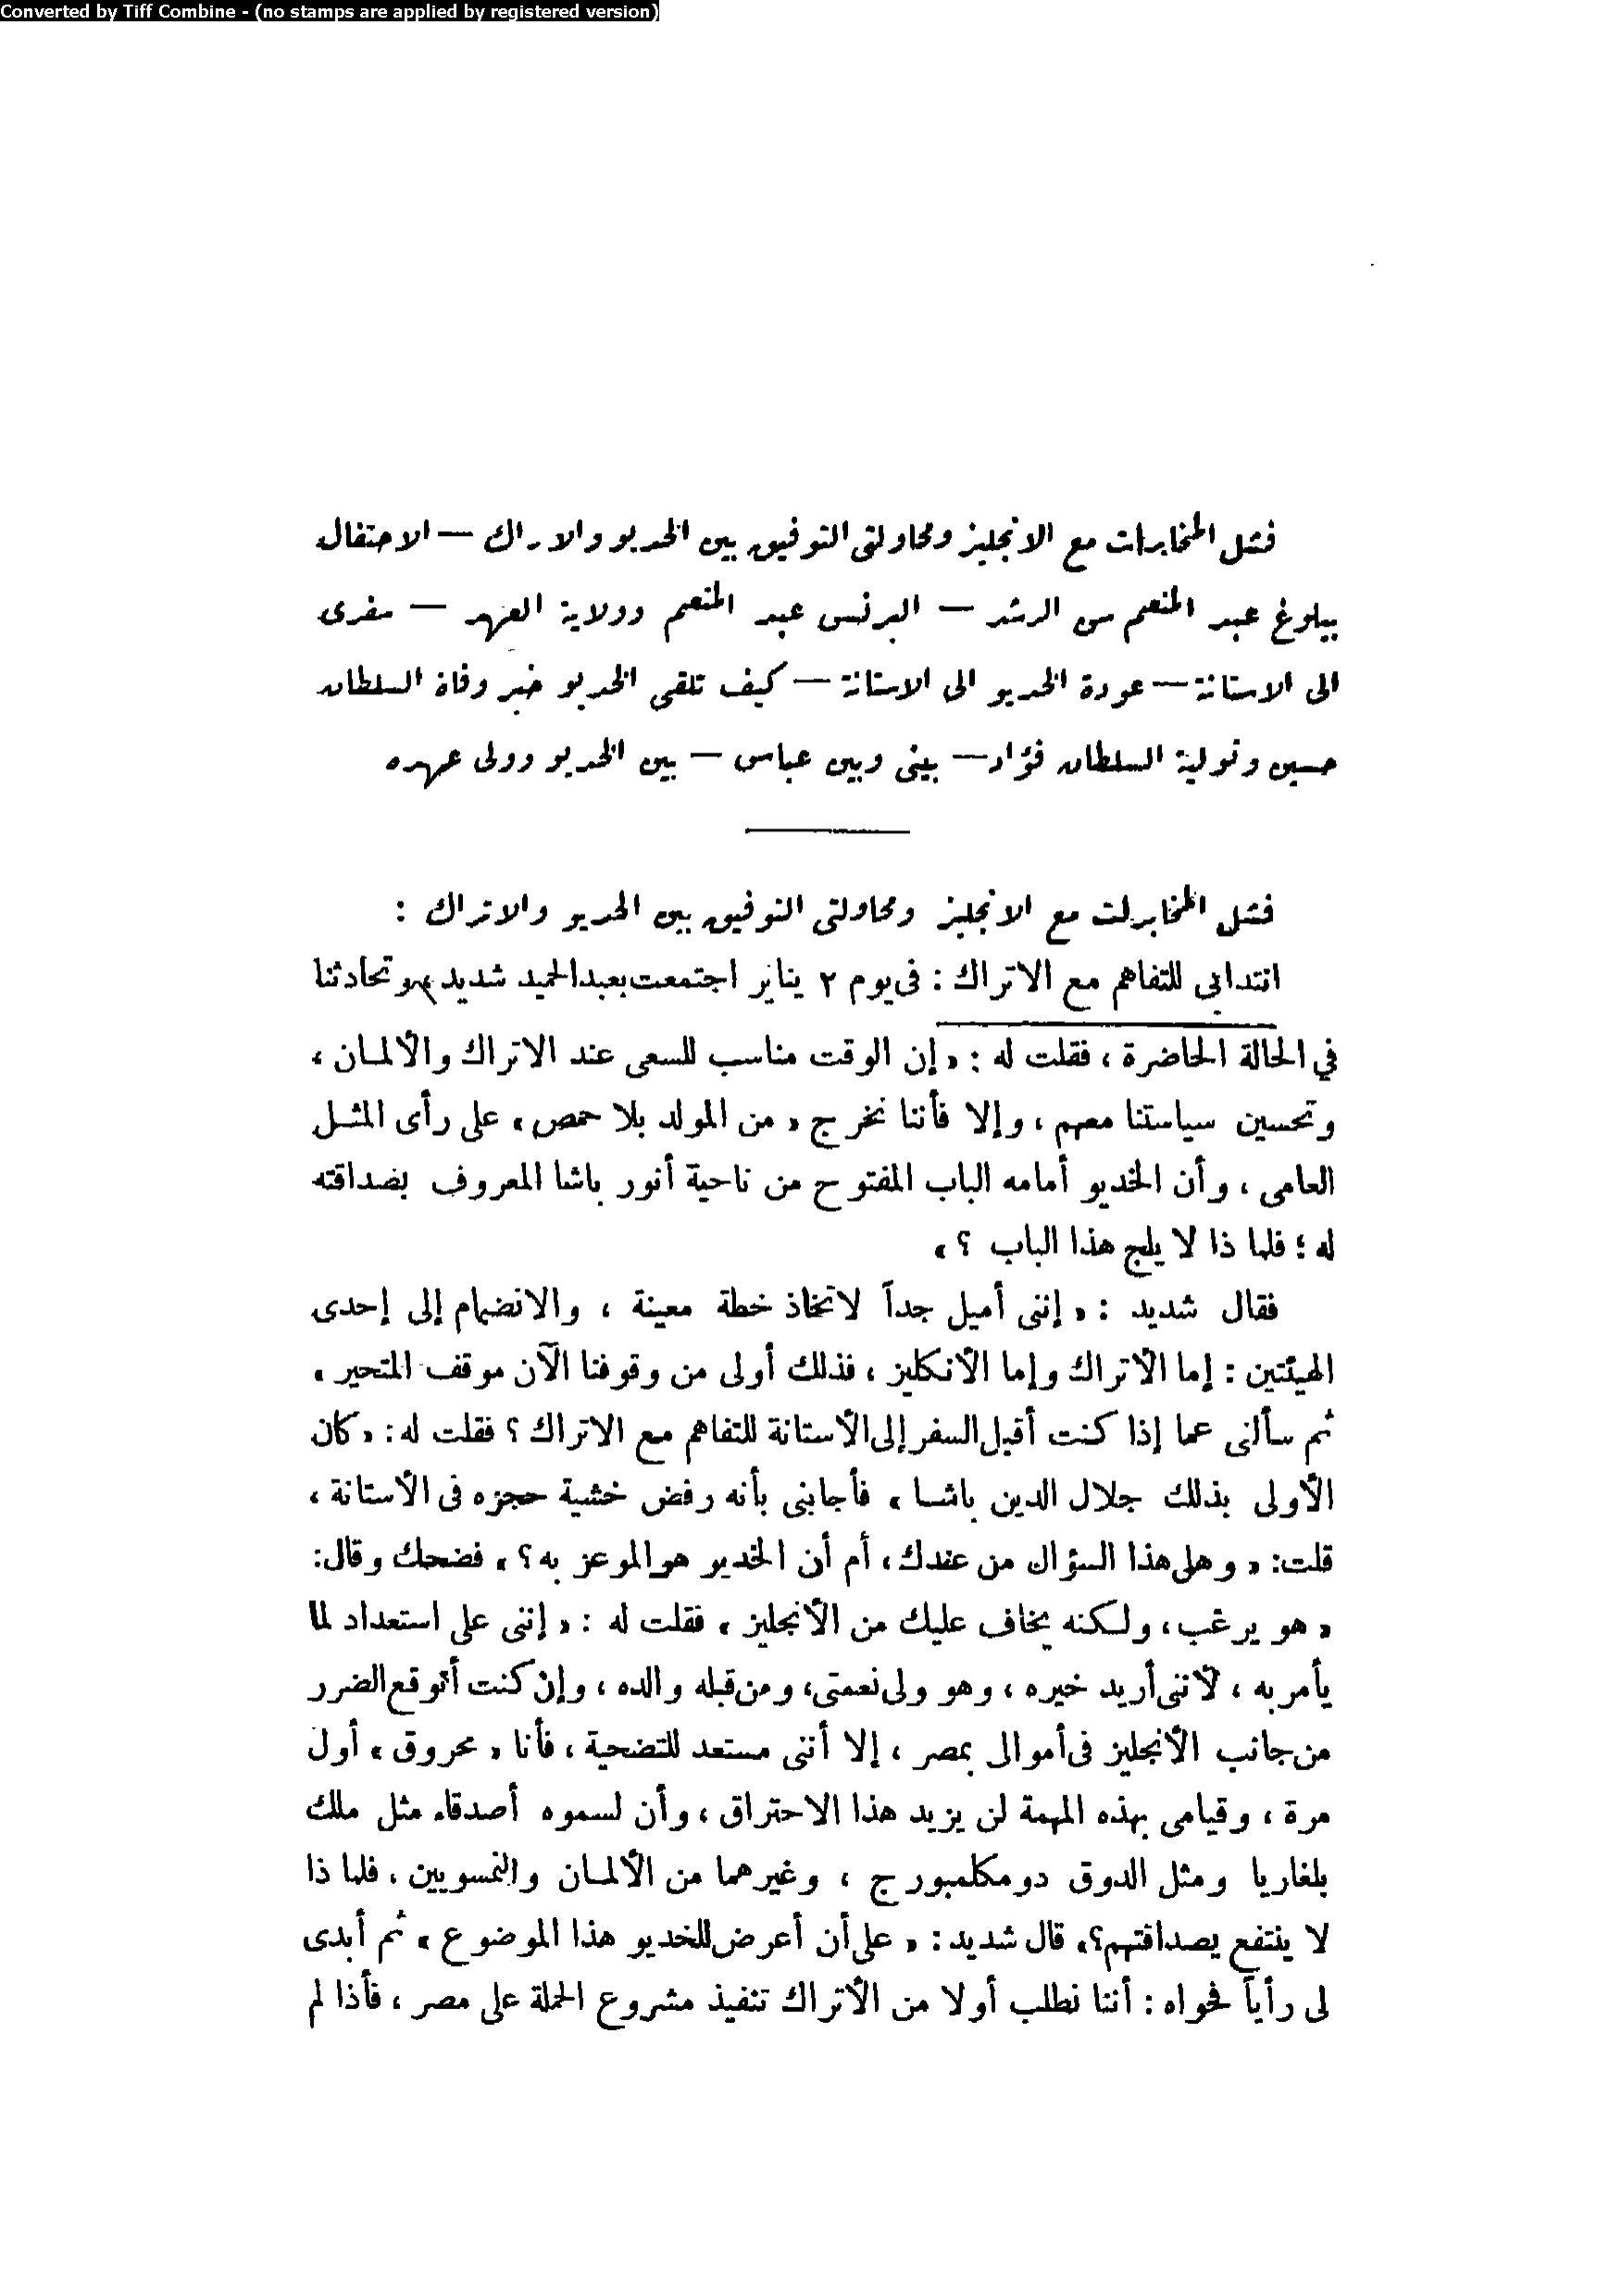 Converted by Tiff Combine - (no stamps are applied by registered version)
فشل المخابرات مع الانجليز ومحاولتى التوفيق بين الخديو والاتراك — الاحتفال
ببلوغ عبد المنعم سن الرشد — البرنس عبد المنعم وولاية العهد — سفرى
الى الاستانة — عودة الخديو الى الاستانة — كيف تلقى الخديو خبر وفاة السلطان
حسين وتولية السلطان فؤاد — بينى وبين عباس — بين الخديو وولى عهده
فشل المخابرات مع الانجليز ومحاولتى التوفيق بين الخديو والاتراك :
انتدابي للتفاهم مع الاتراك : فى يوم ٢ يناير اجتمعت بعبد الحميد شديد ، وتحادثنا
في الحالة الحاضرة ، فقلت له : « إن الوقت مناسب للسعى عند الاتراك والألمـان ،
وتحسين سياستنا معهم ، وإلا فأننا نخرج « من المولد بلا حمص » على رأى المثـل
العامى ، وأن الخديو أمامه الباب المفتوح من ناحية أنور باشا المعروف بصداقته
له ؛ فلما ذا لا يلج هذا الباب ؟ »
فقال شديد : « إننى أميل جداً لاتخاذ خطة معينة ، والانضمام إلى إحدى
الهيئتين : إما الأتراك وإما الأنكليز ، فذلك أولى من وقوفنا الآن موقف المتحير »
ثم سألنى عما إذا كنت أقبل السفر إلى الأستانة للتفاهم مع الاتراك ؟ فقلت له : « كان
الأولى بذلك جلال الدين باشـا » فأجابنى بأنه رفض خشية حجزه فى الأستانة ،
قلت : « وهل هذا السؤال من عندك ، أم أن الخديو هو الموعز به ؟ » فضحك وقال :
« هو يرغب ، ولـكنه يخاف عليك من الأنجليز » فقلت له : « إننى على استعداد لما
يأمر به ، لأننى أريد خيره ، وهو ولى نعمتى ، ومن قبله والده ، وإن كنت أتوقع الضرر
من جانب الأنجليز فى أموالى بمصر ، إلا أننى مستعد للتضحية ، فأنا « محروق » أول
مرة ، وقيامى بهذه المهمة لن يزيد هذا الاحتراق ، وأن لسموه أصدقاء مثل ملك
بلغاريا ومثل الدوق دو مكلمبورج ، وغيرهما من الألمـان والنمسويين ، فلما ذا
لا ينتفع بصداقتهم ؟ » قال شديد : « على أن أعرض للخديو هذا الموضوع » ثم أبدى
لى رأياً فحواه : أننا نطلب أولا من الأتراك تنفيذ مشروع الحملة على مصر ، فأذا لم